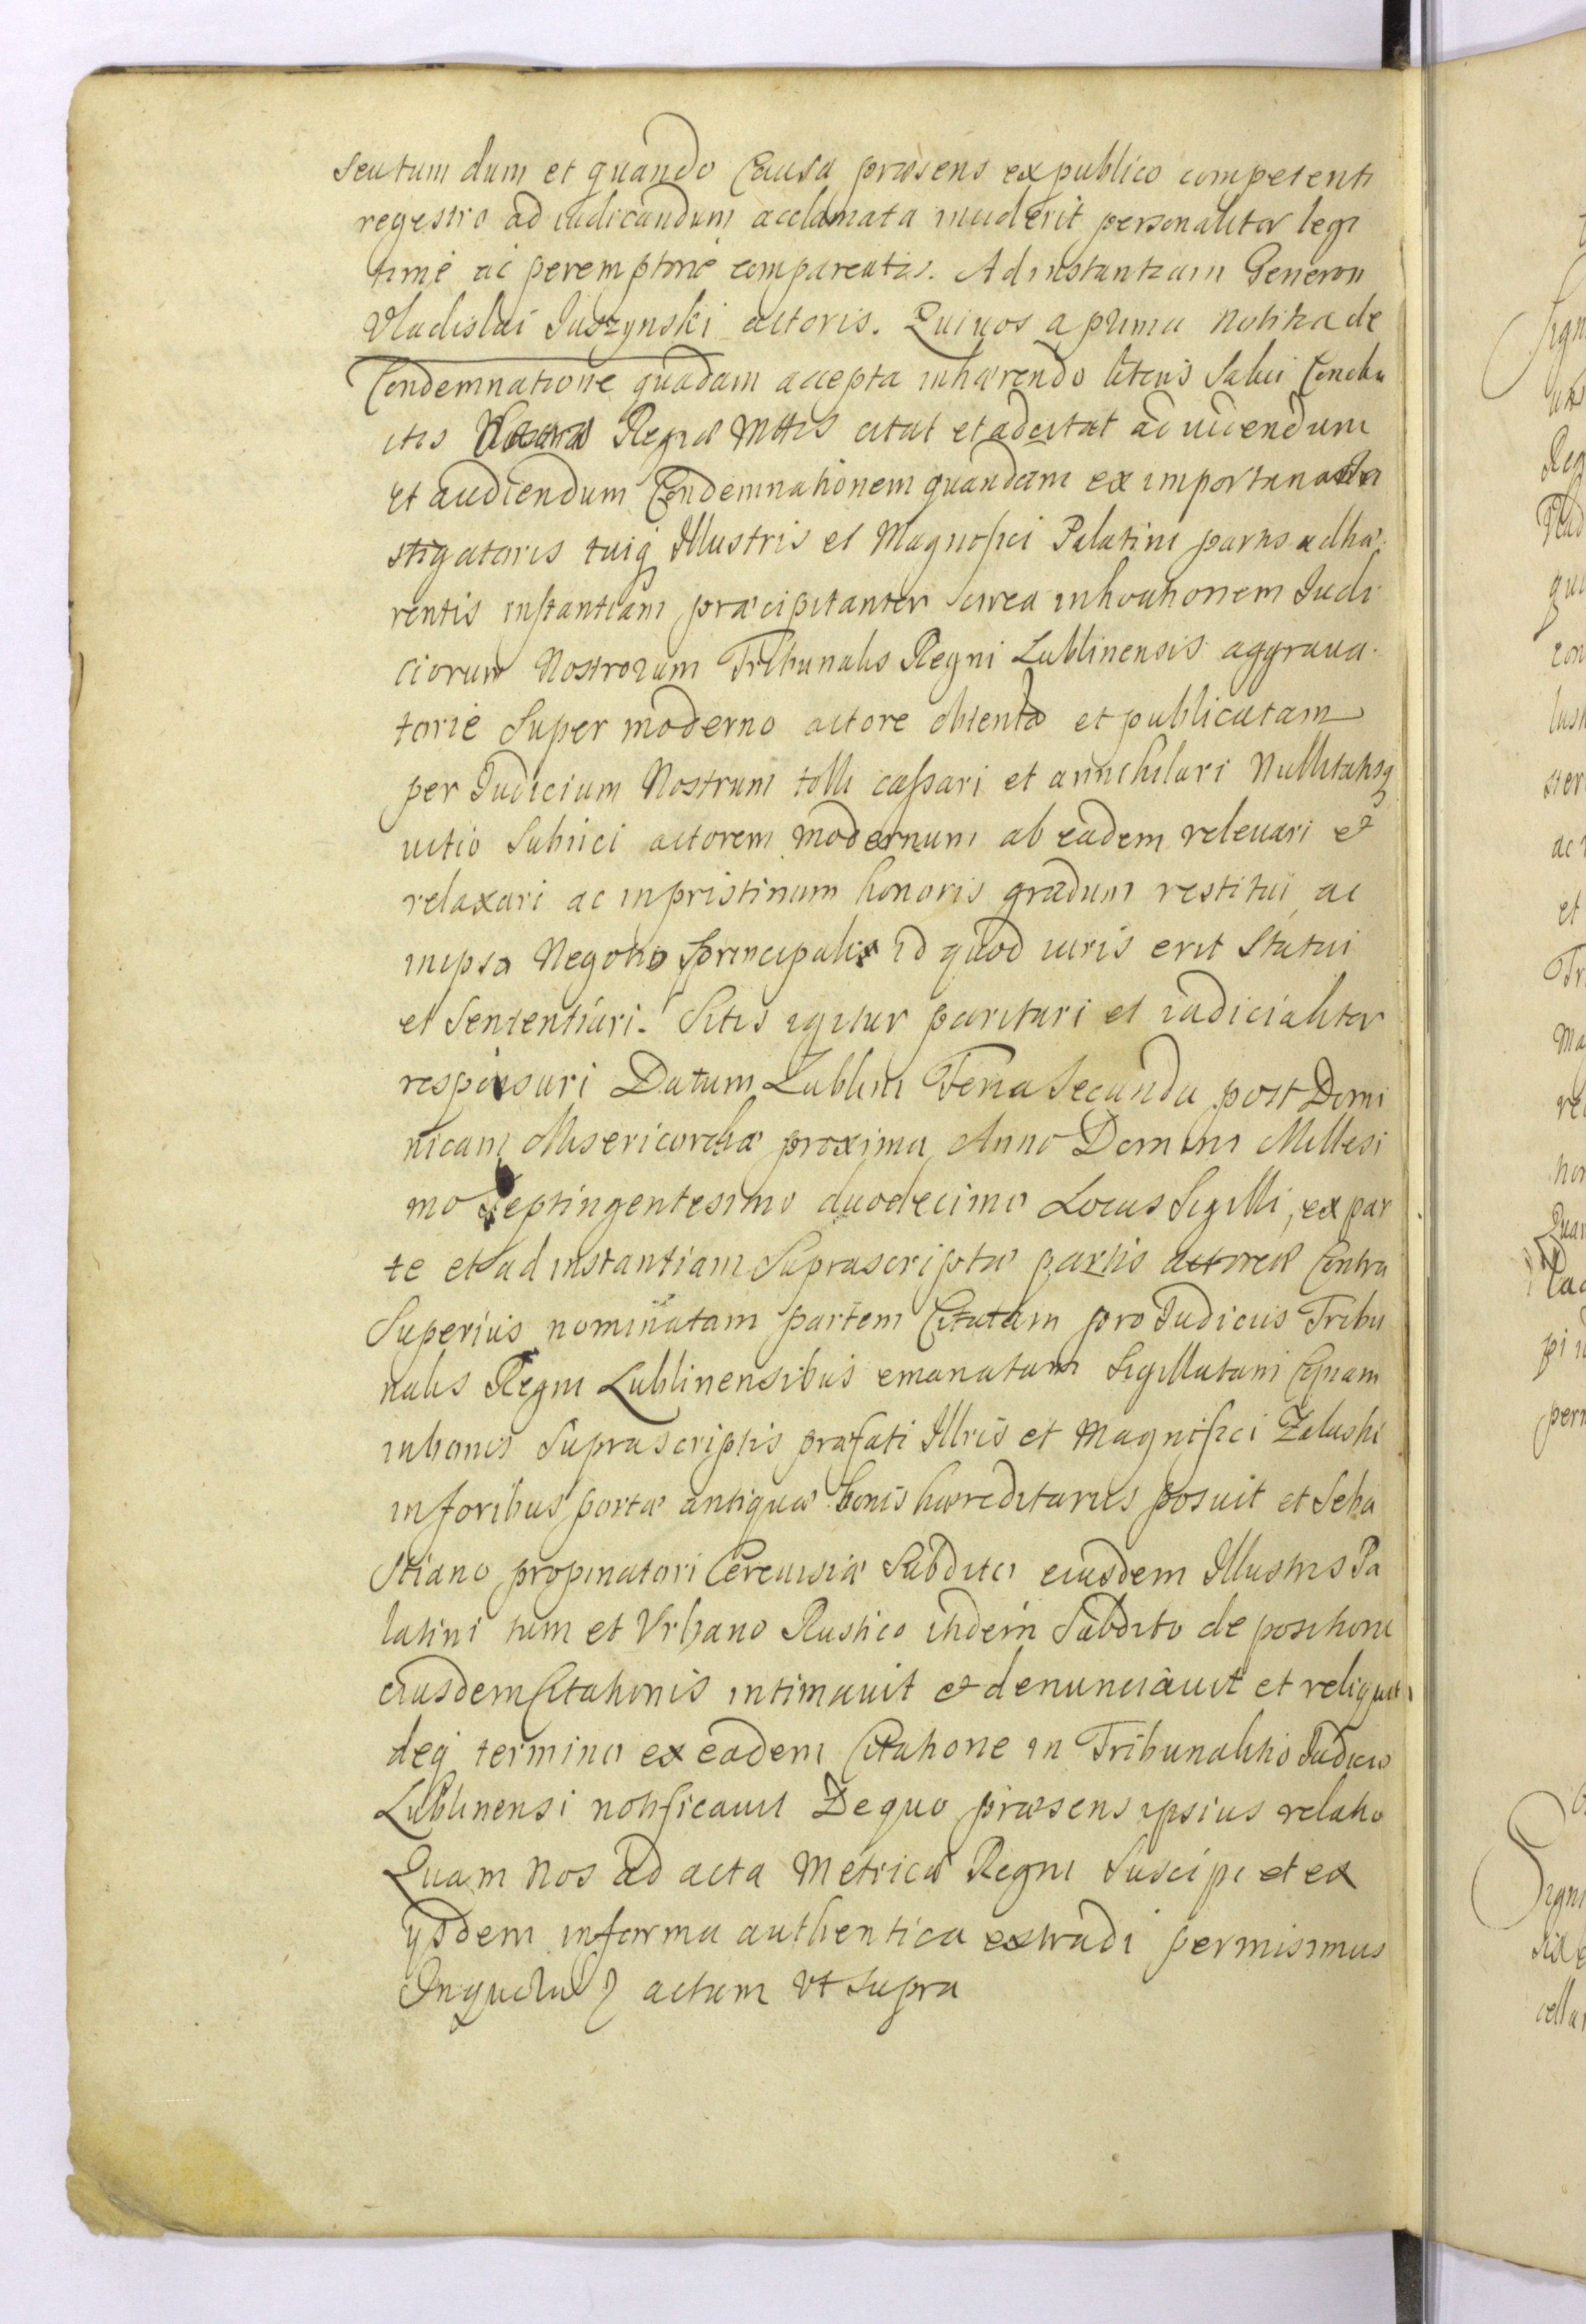 seutum dum et quando Causa præsens ex publico competenti
regestro ad iudicandum acclamata inciderit personaliter legi
time ac peremptorie compareatis. Ad instantiam Generosi
Vladislai Juszynski actoris. Qui vos a prima notitia de
Condemnatione quadam accepta inhærendo literis Salvi Condu
ctus Regiæ Mttis citat et adcitat ad videndum
et audiendum Condemnationem quandam ex importuna In
stigatoris tuiq Illustris et Magnifici Palatini partis adhæ
rentis instantiam præcipitanter circa inhoationem Judi
ciorum Nostrorum Tribunalis Regni Lublinensis aggrava
torie Super moderno actore obtenta et publicatam
per Judicium Nostrum tolli cassari et annichilari Nullitatisq
vitio Subiici actorem modernum ab eadem relevari et
relaxari ac in pristinum honoris gradum restitui ac
in ipso Negotio principali id quod iuris erit Statui
et Sententiari. Sitis igitur parituri et iudicialiter
responsuri Datum Lublini Feria Secunda post Domi
nicam Misericordiæ proxima Anno Domini Millesi
mo Septingentesimo duodecimo Locus Sigilli, ex par
te et ad instantiam Suprascriptæ partis actoreæ Contra
Superius nominatam partem Citatam pro Judiciis Tribu
nalis Regni Lublinensibus emanatam Sigillatam Cquam
in bonis Suprascriptis præfati Illris et Magnifici Zaluski
in foribus portæ antiquæ bonis hæreditariis posuit et Seba
stiano propinatori Cerevisiæ Subdito eiusdem Illustris Pa
latini tum et Urbano Rustico itidem Subdito de positione
eiusdem Citationis intimavit et denunciavit et reliquit
deq termino ex eadem Citatione in Tribunalitio Judicio
Lublinensi notificavit De quo præsens ipsius relatio
Quam Nos ad acta Metricæ Regni Suscipi et ex
ijsdem in forma authentica extradi permisimus
In quoru actum Vt supra